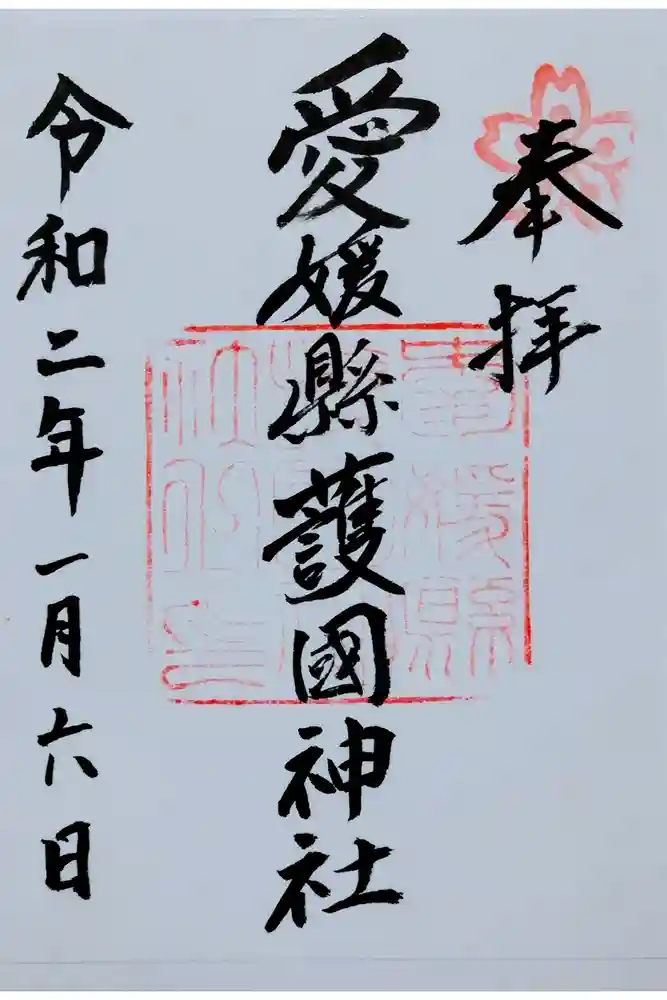 奉拝
愛媛縣護國神社
令和二年一月六日